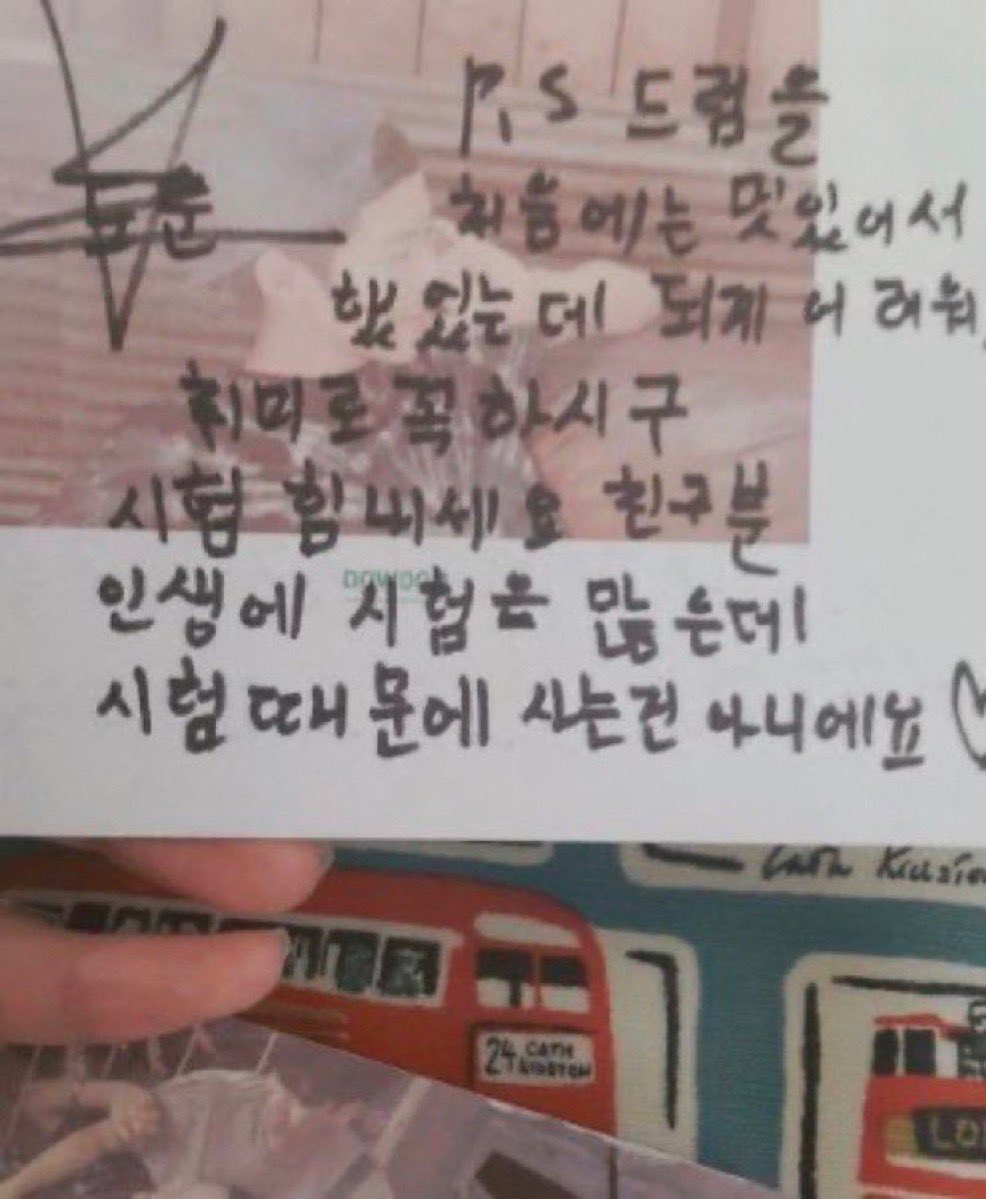 P.S 드럼을
도운
처음에는 멋있어서
했있는데 되게 어려워
취미로 꼭 하시구
시험 힘내세요 친구분
인생에 시험은 많은데
시험 때문에 사는건 아니에요
Cath Kidston
24 CATH
KIDSTON